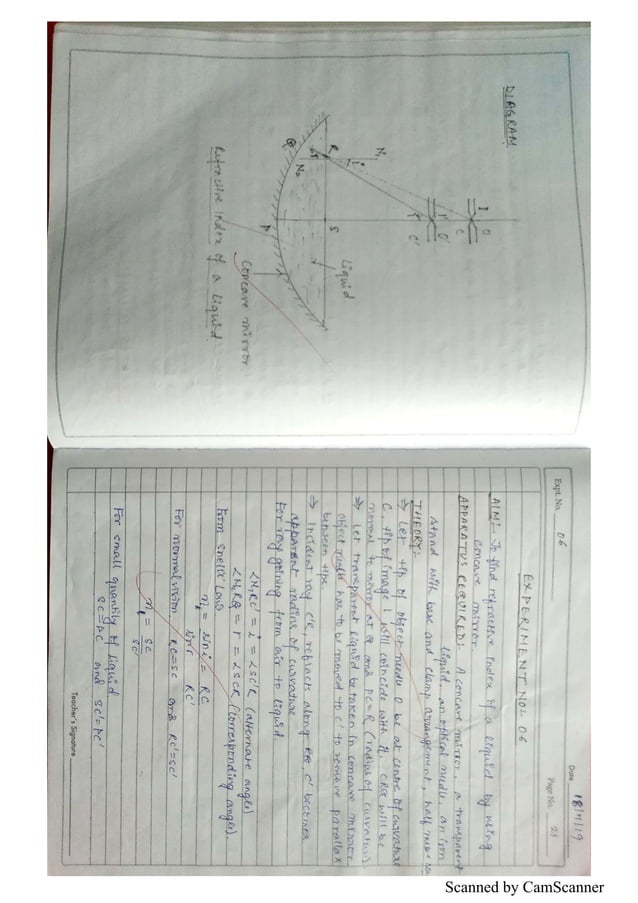 DIAGRAM
O
I
C
O'
I'
C'
N1
i
R
r
N2
Q
S
P
Liquid
Concave mirror
Refractive Index of a liquid.
Expt. No. 06
Date 18/7/19
Page No. 21
EXPERIMENT NO: 06
AIM: To find refractive index of a liquid by using
concave mirror
APPARATUS REQUIRED: A concave mirror, a transparent
liquid, an optical needle, an iron
stand with base and clamp arrangement, half metre
THEORY:
⇒ Let tip of object needle O be at centre of curvature
C, tip of image I will coincide with it, CRQ will be
normal to mirror at Q and PC=R (radius of curvature)
⇒ Let transparent liquid be taken in concave mirror
object needle has to be moved to C' to remove parallax
between tips.
⇒ Incident ray C'R, refracts along RQ, C' becomes
apparent radius of curvature
For ray going from air to liquid.
∠N1RC' = i = ∠SC'R (alternate angle)
∠N2RQ = r = ∠SCR (corresponding angle).
From snells laws
n = sin i = RC
sin r RC'
For normal vision RC=SC and RC'=SC'
n = SC
SC'
For small quantity of liquid
SC=PC and SC'=PC'
Teacher's Signature
Scanned by CamScanner